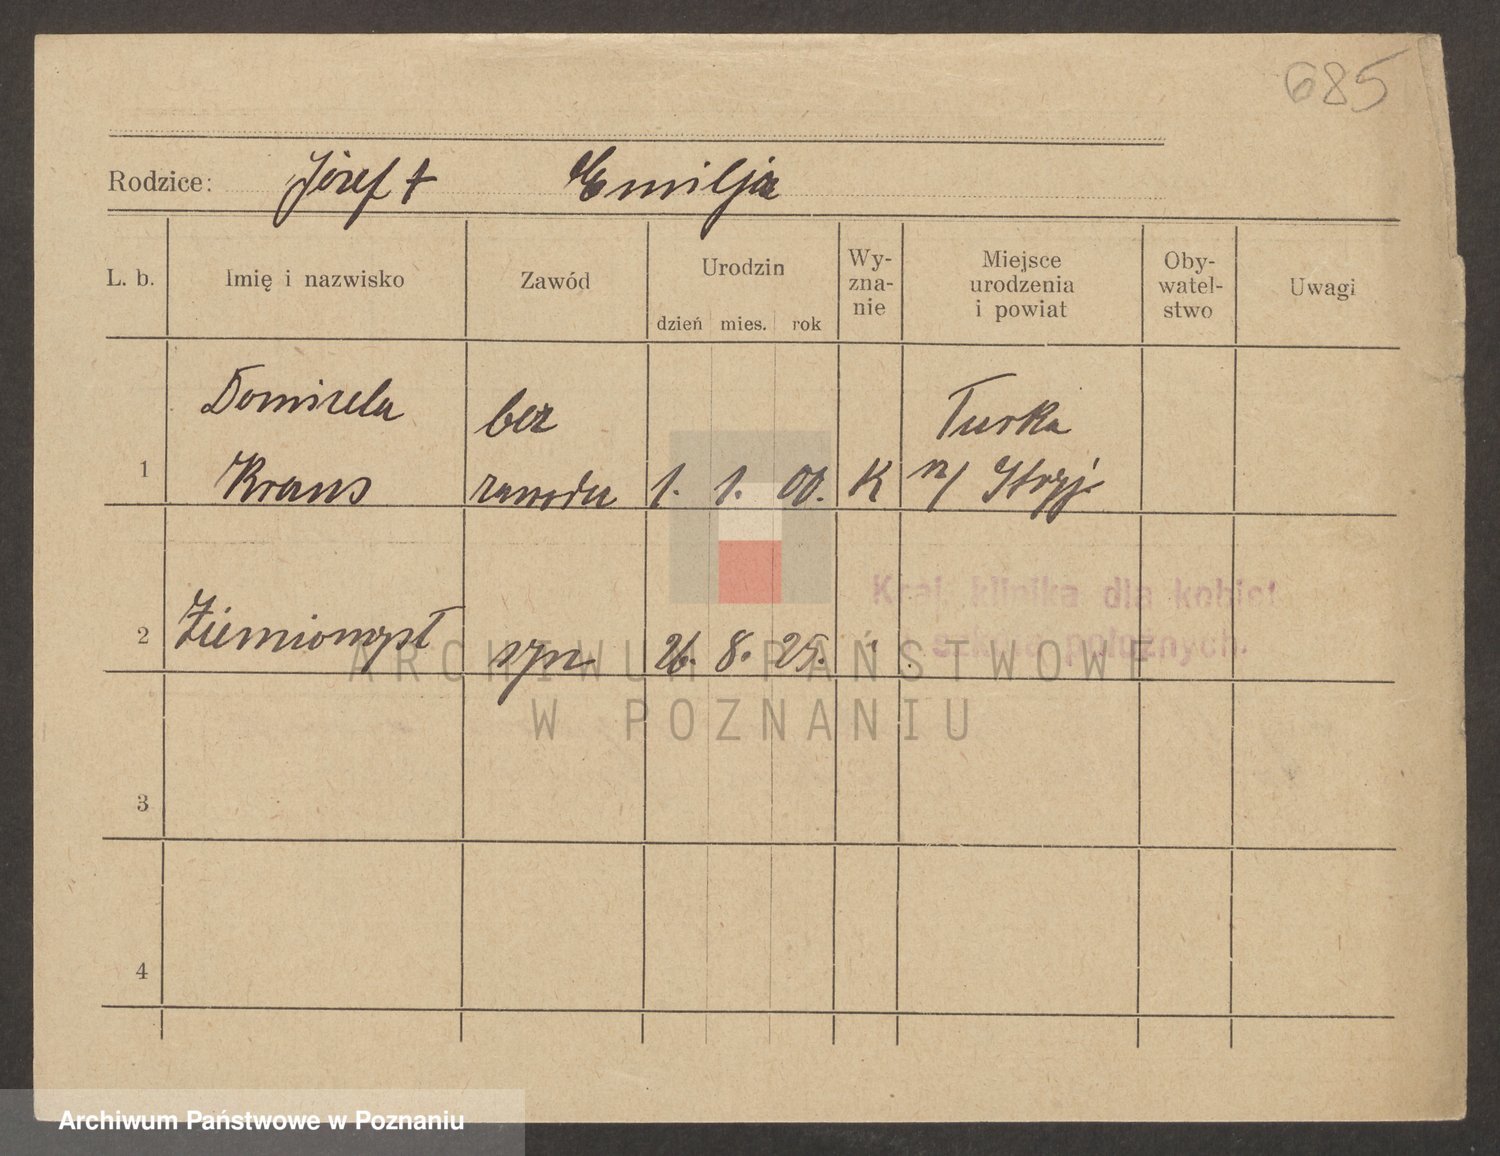 685
Rodzice: Józef † Emilja
L. b. Imię i nazwisko Zawód Urodzin dzień mies. rok Wy-zna-nie Miejsce urodzenia i powiat Oby-watel-stwo Uwagi
Domicela bez Turka
1 Kraus zawodu 1. 1. 00. K n/ Stryj.
Kraj. klinika dla kobiet
2 Ziemiomysł syn 26. 8. 25. "
położnych.
ARCHIWUM PAŃSTWOWE
W POZNANIU
3
4
Archiwum Państwowe w Poznaniu